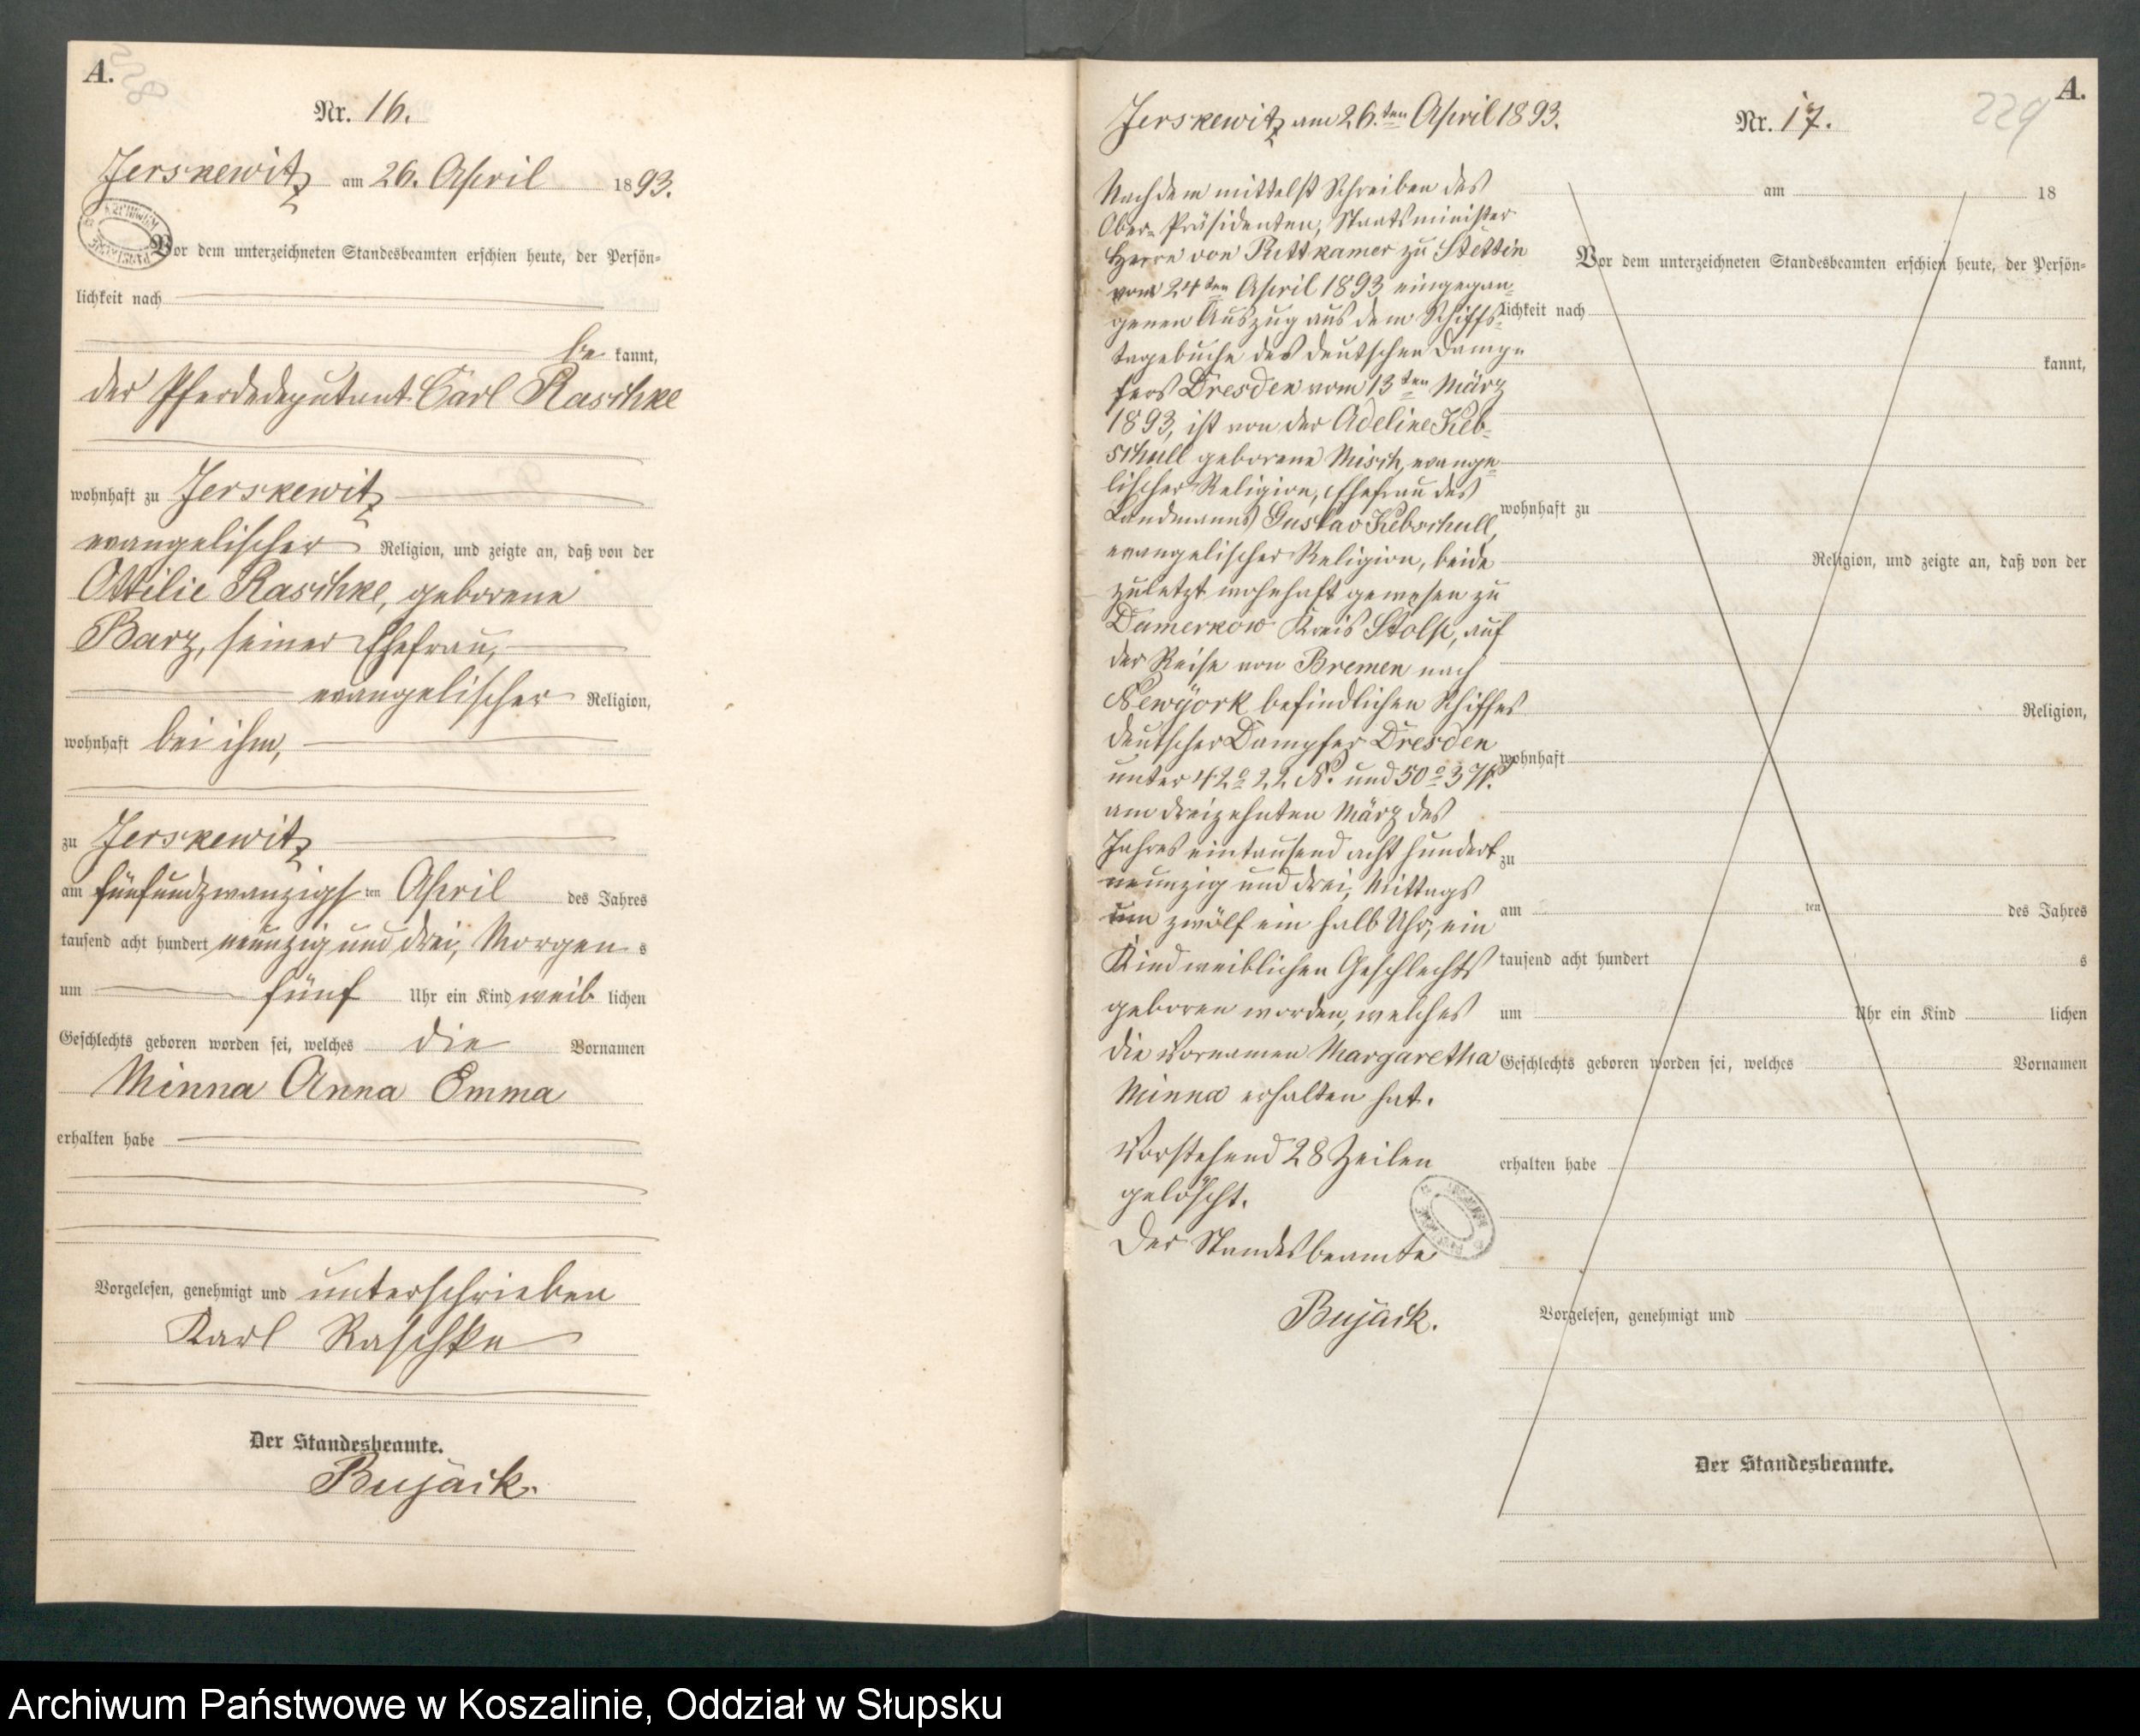 A.
228
Nr. 16.
Jerskewitz am 26. April 1893.
Vor dem unterzeichneten Standesbeamten erschien heute, der Persön=
lichkeit nach
be kannt,
der Pferdedeputant Carl Raschke
wohnhaft zu Jerskewitz
evangelischer Religion, und zeigte an, daß von der
Ottilie Raschke, geborene
Barz, seiner Ehefrau,
evangelischer Religion,
wohnhaft bei ihm,
zu Jerskewitz
am fünfundzwanzigsten April des Jahres
tausend acht hundert neunzig und drei, Morgens
um fünf Uhr ein Kind weiblichen
Geschlechts geboren worden sei, welches die Vornamen
Minna Anna Emma
erhalten habe
Vorgelesen, genehmigt und unterschrieben
Karl Raschke
Der Standesbeamte.
Bujack.
A.
229
Jerskewitz am 26.ten April 1893.
Nr. 17.
Nachdem mittelst Schreiben des
Ober=Präsidenten, Staatsminister
Herrn von Puttkamer zu Stettin
vom 24ten April 1893 eingegan=
genen Auszug aus dem Schiffs=
tagebuche des deutschen Damp=
fers Dresden vom 13ten März
1893, ist von der Adeline Keb=
schull geborene Misch, evange=
lischer Religion, Ehefrau des
Landmanns Gustav Kebschull,
evangelischer Religion, beide
zuletzt wohnhaft gewesen zu
Damerkow Kreis Stolp, auf
der Reise von Bremen nach
Newyork befindlichen Schiffes
deutscher Dampfer Dresden
unter 42° 22 N. und 50° 37
am dreizehnten März des
Jahres eintausend acht hundert
neunzig und drei, Mittags
um zwölf ein halb Uhr, ein
Kind weiblichen Geschlechts
geboren worden, welches
die Vornamen Margaretha
Minna erhalten hat.
Vorstehend 28 Zeilen
gelöscht.
Der Standesbeamte
Bujack.
am 18
Vor dem unterzeichneten Standesbeamten erschien heute, der Persön=
lichkeit nach
kannt,
wohnhaft zu
Religion, und zeigte an, daß von der
Religion,
wohnhaft
zu
am ten des Jahres
tausend acht hundert s
um Uhr ein Kind lichen
Geschlechts geboren worden sei, welches Vornamen
erhalten habe
Vorgelesen, genehmigt und
Der Standesbeamte.
Archiwum Państwowe w Koszalinie, Oddział w Słupsku